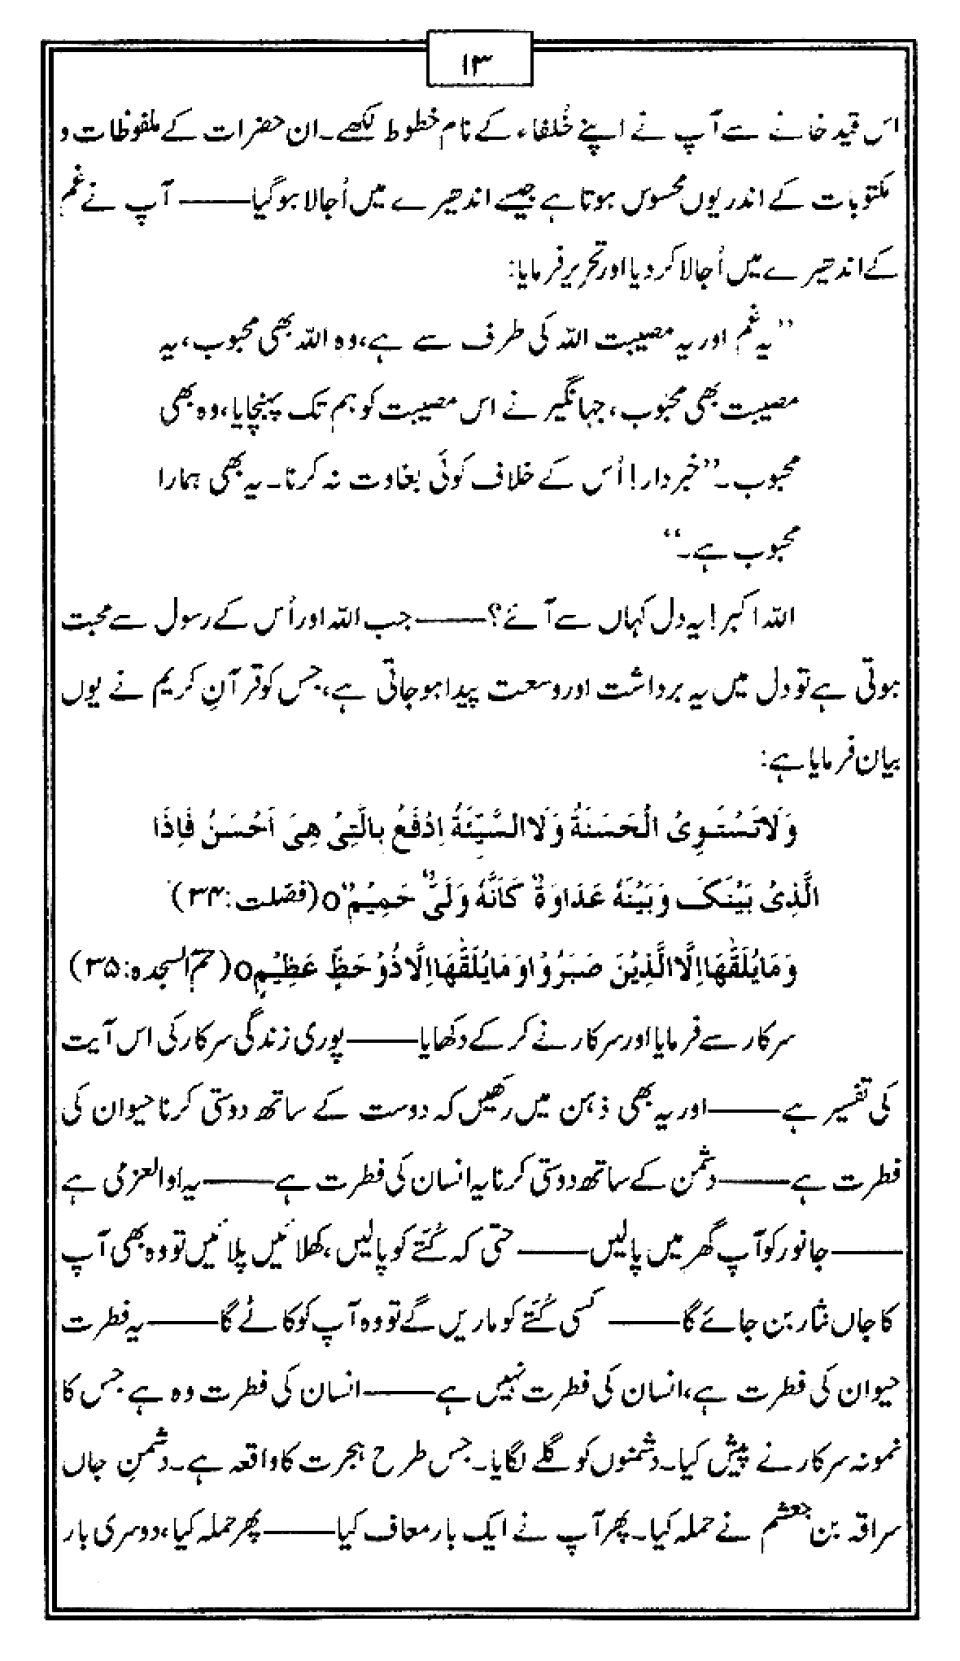 ۱۳
اس قید خانے سے آپ نے اپنے خُلفاء کے نام خطوط لکھے۔ ان حضرات کے ملفوظات و
مکتوبات کے اندر یوں محسوس ہوتا ہے جیسے اندھیرے میں اُجالا ہوگیا——— آپ نے غم
کے اندھیرے میں اُجالا کردیا اور تحریر فرمایا:
’’یہ غم اور یہ مصیبت اللہ کی طرف سے ہے، وہ اللہ بھی محبوب، یہ
مصیبت بھی محبوب، جہانگیر نے اس مصیبت کو ہم تک پہنچایا، وہ بھی
محبوب۔’’خبردار! اُس کے خلاف کوئی بغاوت نہ کرنا۔ یہ بھی ہمارا
محبوب ہے۔‘‘
اللہ اکبر! یہ دل کہاں سے آئے؟———جب اللہ اور اُس کے رسول سے محبت
ہوتی ہے تو دل میں یہ برداشت اور وسعت پیدا ہوجاتی ہے، جس کو قرآنِ کریم نے یوں
بیان فرمایا ہے:
وَلَا تَسْتَوِیُ الْحَسَنَةُ وَلَا السَّیِّئَةُ اِدْفَعُ بِالَّتِیُ هِیَ اَحْسَنُ فَاِذَا
الَّذِیُ بَیْنَکَ وَبَیْنَهٗ عَدَاوَةٌ کَاَنَّهٗ وَلَیٌّ حَمِیْمٌ o (فصّلت:۳۴)
وَمَا یُلَقّٰهَا اِلَّا الَّذِیْنَ صَبَرُوْا وَمَا یُلَقّٰهَا اِلَّا ذُوْ حَظٍّ عَظِیْمٍ o (حٰمٓ السجدہ:۳۵)
سرکار سے فرمایا اور سرکار نے کرکے دکھایا———پوری زندگی سرکار کی اس آیت
کی تفسیر ہے———اور یہ بھی ذہن میں رکھیں کہ دوست کے ساتھ دوستی کرنا حیوان کی
فطرت ہے———دشمن کے ساتھ دوستی کرنا یہ انسان کی فطرت ہے———یہ اوالعزمی ہے
———جانور کو آپ گھر میں پالیں———حتی کہ کُتّے کو پالیں، کھلائیں پلائیں تو وہ بھی آپ
کا جاں نثار بن جائے گا———کسی کُتّے کو ماریں گے تو وہ آپ کو کاٹے گا———یہ فطرت
حیوان کی فطرت ہے، انسان کی فطرت نہیں ہے———انسان کی فطرت وہ ہے جس کا
نمونہ سرکار نے پیش کیا۔ دشمنوں کو گلے لگایا۔ جس طرح ہجرت کا واقعہ ہے۔ دشمنِ جاں
سراقہ بن جعشم نے حملہ کیا۔ پھر آپ نے ایک بار معاف کیا———پھر حملہ کیا، دوسری بار